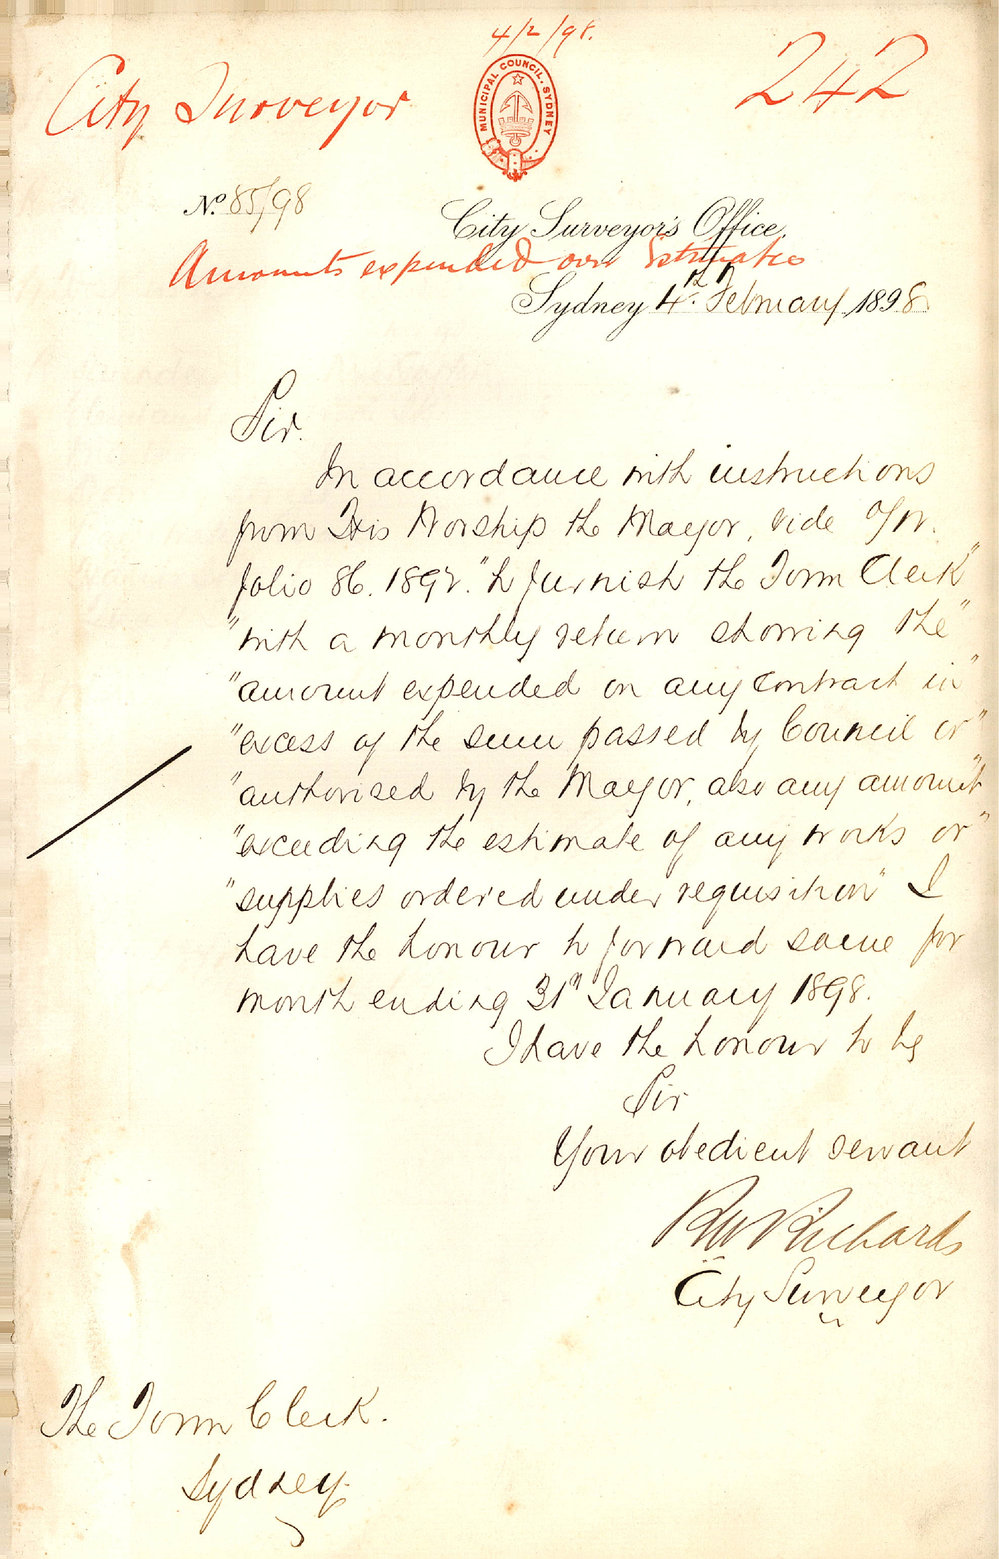 4/2/98.
City Surveyor
242
MUNICIPAL COUNCIL. SYDNEY
No. 85/98
City Surveyor's Office,
Amounts expended over Estimates
Sydney 4th February 1898
Sir.
In accordance with instructions
from His Worship the Mayor, vide
folio 86. 1892. "to furnish the Town Clerk"
"with a monthly return showing the"
"amount expended on any contract in"
"excess of the sum passed by Council or"
"authorised by the Mayor, also any amount"
"exceeding the estimate of any works or"
"supplies ordered under requisition" I
have the honour to forward same for
month ending 31st January 1898.
I have the honour to be
Sir
Your obedient servant
RW Richards
City Surveyor
The Town Clerk.
Sydney.